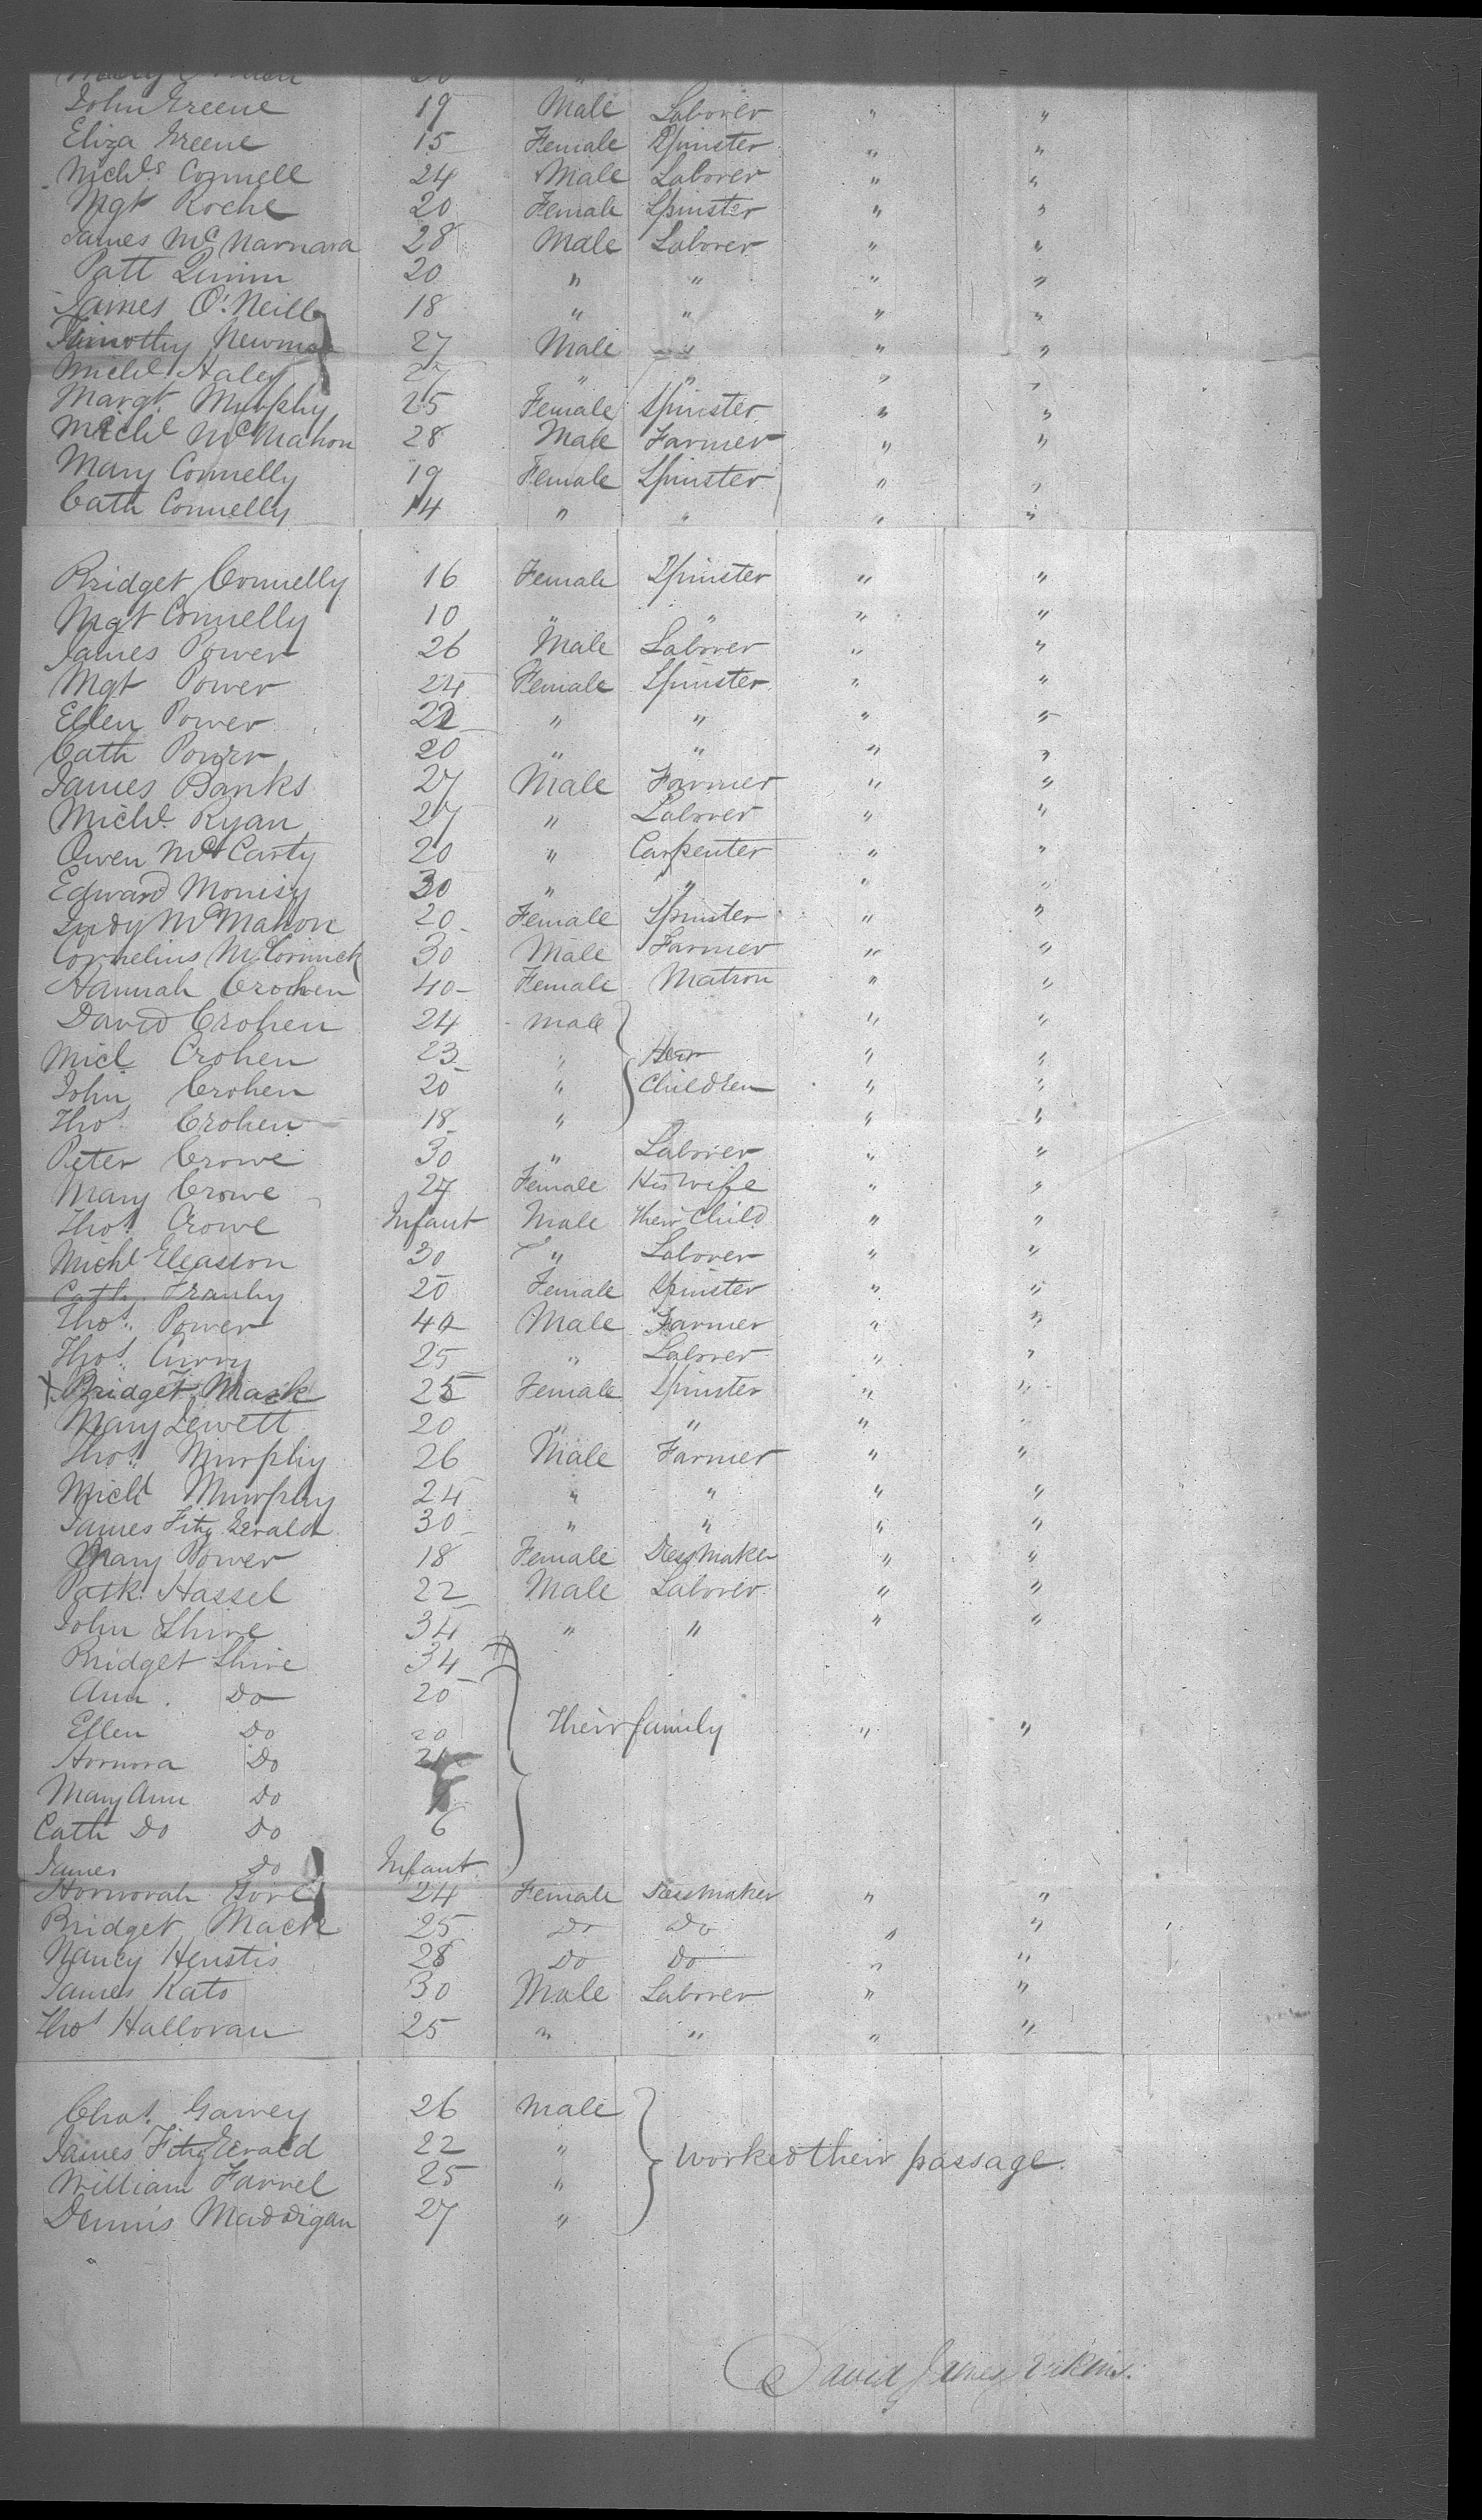 John Greene 19 Male Laborer " "
Eliza Greene 15 Female Spinster " "
Nichls Connell 24 Male Laborer " "
Mgt Roche 20 Female Spinster " "
James McNamara 28 Male Laborer " "
Patt Quinn 20 " " " "
James O'Neill 18 " " " "
Timothy Newman 27 Male " " "
Michl Haley 27 " " " "
Margt Murphy 25 Female Spinster " "
Michl McMahon 28 Male Farmer " "
Mary Connelly 19 Female Spinster " "
Cath Connelly 14 " " " "
Bridget Connelly 16 Female Spinster " "
Mgt Connelly 10 " " " "
James Power 26 Male Laborer " "
Mgt Power 24 Female Spinster " "
Ellen Power 22 " " " "
Cath Power 20 " " " "
James Banks 27 Male Farmer " "
Michl. Ryan 27 " Laborer " "
Owen McCarty 20 " Carpenter " "
Edward Monisy 30 " " " "
Judy McMahon 20 Female Spinster " "
Cornelius McCormick 30 Male Farmer " "
Hannah Crohen 40 Female Matron " "
David Crohen 24 Male " "
Micl Crohen 23 " Her " "
John Crohen 20 " Children " "
Thos. Crohen 18 " " "
Peter Crowe 30 " Laborer " "
Mary Crowe 27 Female His wife " "
Thos. Crowe Infant Male their Child " "
Michl Eleasson 30 " Laborer " "
Cath. 20 Female Spinster " "
Thos. Power 40 Male Farmer " "
Thos. Curry 25 " Laborer " "
X Bridget Mack 25 Female Spinster " "
Mary Lewett 20 " " "
Thos. Murphy 26 Male Farmer " "
Michl Murphy 24 " " " "
James FitzGerald 30 " " " "
Mary Power 18 Female Dressmaker " "
Patk. Hassel 22 Male Laborer " "
John Shine 34 " " " "
Bridget Shine 34
Ann. Do 20
Ellen Do 20 their family " "
Honora Do
Mary Ann Do
Cath Do Do 6
James Do Infant
Honorah 24 Female Dressmaker " "
Bridget Mack 25 Do Do " "
Nancy Henstis 28 Do Do " "
James Kato 30 Male Laborer " "
Thos Halloran 25 " " " "
Chas. Garvey 26 Male
James FitzGerald 22 " worked their passage.
William Farrel 25 "
Dennis Maddigan 27 "
David James